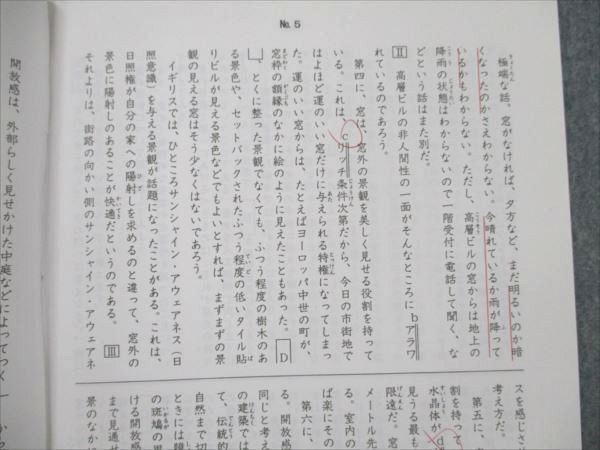 №5
極端な話。窓がなければ、夕方など、まだ明るいのか暗
くなったのかさえわからない。今晴れているか雨が降って
いるかもわからない。ただし、高層ビルの窓からは地上の
降雨の状態はわからないので一階受付に電話して聞く、な
どという話はまた別だ。
Ⅱ 高層ビルの非人間性の一面がそんなところにbアラワ
れているのであろう。
第四に、窓は、窓外の景観を美しく見せる役割を持って
いる。これは、cリッチ条件次第だから、今日の市街地で
はよほど運のいい窓だけに与えられる特権になってしまっ
た。運のいい窓からは、たとえばヨーロッパ中世の町が、
窓枠の額縁のなかに絵のように見えたこともあった。D
、とくに整った景観でなくても、ふつう程度の樹木のあ
る景色や、セットバックされたふつう程度の低いタイル貼
りビルが見える景色などでもよいとすれば、まずまずの景
観の見える窓はそう少なくはないであろう。
イギリスでは、ひところサンシャイン・アウェアネス（日
照意識）を与える景観が話題になったことがある。これは、
日照権が自分の家への陽射しを求めるのと違って、窓外の
景色に陽射しのあることが快適だというのである。Ⅲ
それよりは、街路の向かい側のサンシャイン・アウェアネ
開放感は、外部らしく見せかけた中庭などによってつく
スを感じさ
考え方だ。
第五に、
割を持って
水晶体がd
見うる最も
限遠だ。窓
メートル先
る。室内の
ば楽にその
第六に、
る。開放感
同じと考え
の建築では
て、伝統的
自然まで切
ときには鏡
の斑鳩の里
ける開放感
まで見通せ
景のなかに